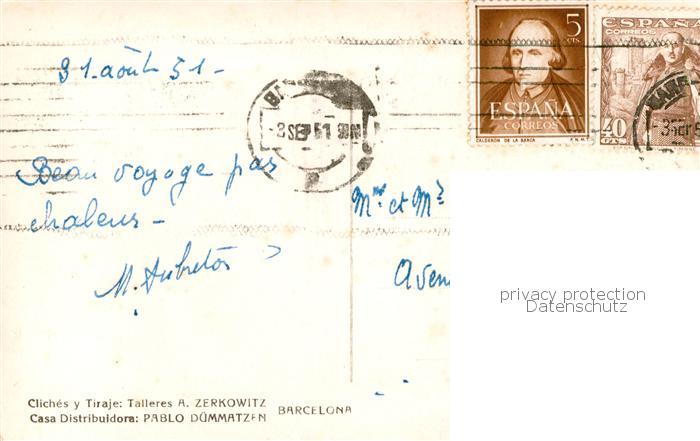 31 août 51 -
5
cts
ESPAÑA
CORREOS
CALDERON DE LA BARCA
F.N.M.T.
ESPAÑA
CORREOS
40
CTS
-3 SEP 51
-3 SEP 5
Beau voyage pas
chaleur -
Mr et Me
M.
Aven
privacy protection
Datenschutz
Clichés y Tiraje: Talleres A. ZERKOWITZ
Casa Distribuidora: PABLO DÜMMATZEN
BARCELONA